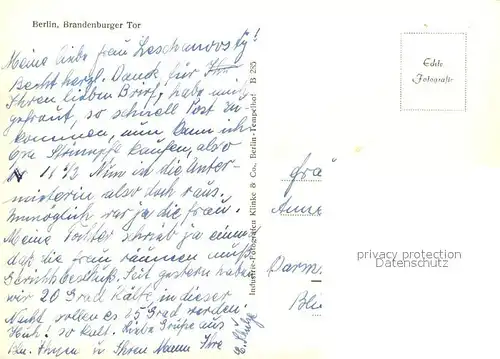 Berlin, Brandenburger Tor
Meine liebe Frau Leschanovsky!
Recht herzl. Dank für Ihr
Ihren lieben Brief, habe mich
gefreut, so schnell Post zu
bekommen, nun kann ich
Strümpfe kaufen, also
Nun ist die Unter-
mieterin also doch raus.
Unmöglich war ja die Frau.
Meine Tochter schrieb ja einmal
daß die Frau räumen muß
Gerichtsbeschluß. Seit gestern haben
wir 20 Grad Kälte, in dieser
Nacht sollen es 25 Grad werden.
Huh! so kalt. Liebe Grüße aus
Bln. Ihnen u. Ihrem Mann Ihre
E.
Industrie-Fotografen Klinke & Co., Berlin-Tempelhof B 285
Echte
Fotografie
Frau
Darm
privacy protection
Datenschutz